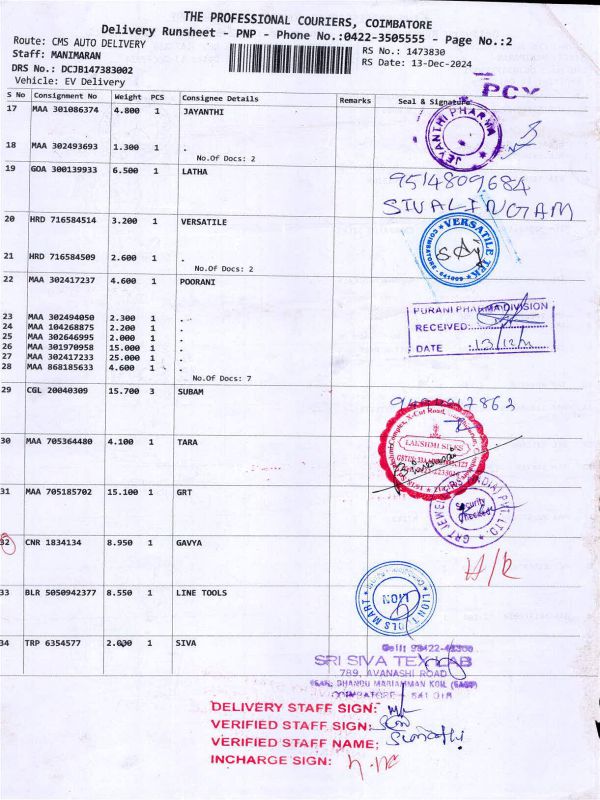 THE PROFESSIONAL COURIERS, COIMBATORE
Delivery Runsheet - PNP - Phone No.:0422-3505555 - Page No.:2
Route: CMS AUTO DELIVERY
Staff: MANIMARAN
RS No.: 1473830
DRS No.: DCJB147383002
RS Date: 13-Dec-2024
Vehicle: EV Delivery
POY
S No Consignment No Weight PCS Consignee Details Remarks Seal & Signature
17 MAA 301086374 4.800 1 JAYANTHI
JEYANTHI PHARMA
18 MAA 302493693 1.300 1 .
No.Of Docs: 2
19 GOA 300139933 6.500 1 LATHA
9514809684
SIVALINGAM
20 HRD 716584514 3.200 1 VERSATILE
VERSATILE TEX
21 HRD 716584509 2.600 1 .
No.Of Docs: 2
22 MAA 302417237 4.600 1 POORANI
PURANI PHARMA DIVISION
RECEIVED:
DATE : 13/12/
23 MAA 302494050 2.300 1 .
24 MAA 104268875 2.200 1 .
25 MAA 302646995 2.000 1 .
26 MAA 301970958 15.000 1 .
27 MAA 302417233 25.000 1 .
28 MAA 868185633 4.600 1 .
No.Of Docs: 7
29 CGL 20040309 15.700 3 SUBAM
LAKSHMI SILKS
30 MAA 705364480 4.100 1 TARA
31 MAA 705185702 15.100 1 GRT
GRT JEWELLERS (INDIA) PVT. LTD.
Security Checked
32 CNR 1834134 8.950 1 GAVYA
H/R
33 BLR 5050942377 8.550 1 LINE TOOLS
LION TOOLS MART
LION
34 TRP 6354577 2.000 1 SIVA
SRI SIVA TEX LAB
789, AVANASHI ROAD
COIMBATORE - 641 018
DELIVERY STAFF SIGN:
VERIFIED STAFF SIGN:
VERIFIED STAFF NAME:
INCHARGE SIGN: